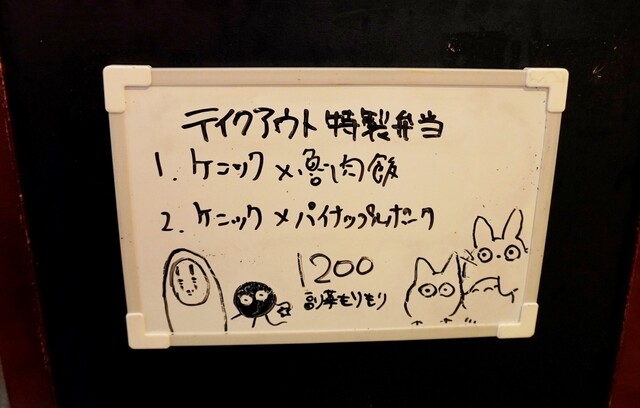 テイクアウト特製弁当
1. ケニック×魯肉飯
2. ケニック×パイナップルポーク
1200
副菜もりもり